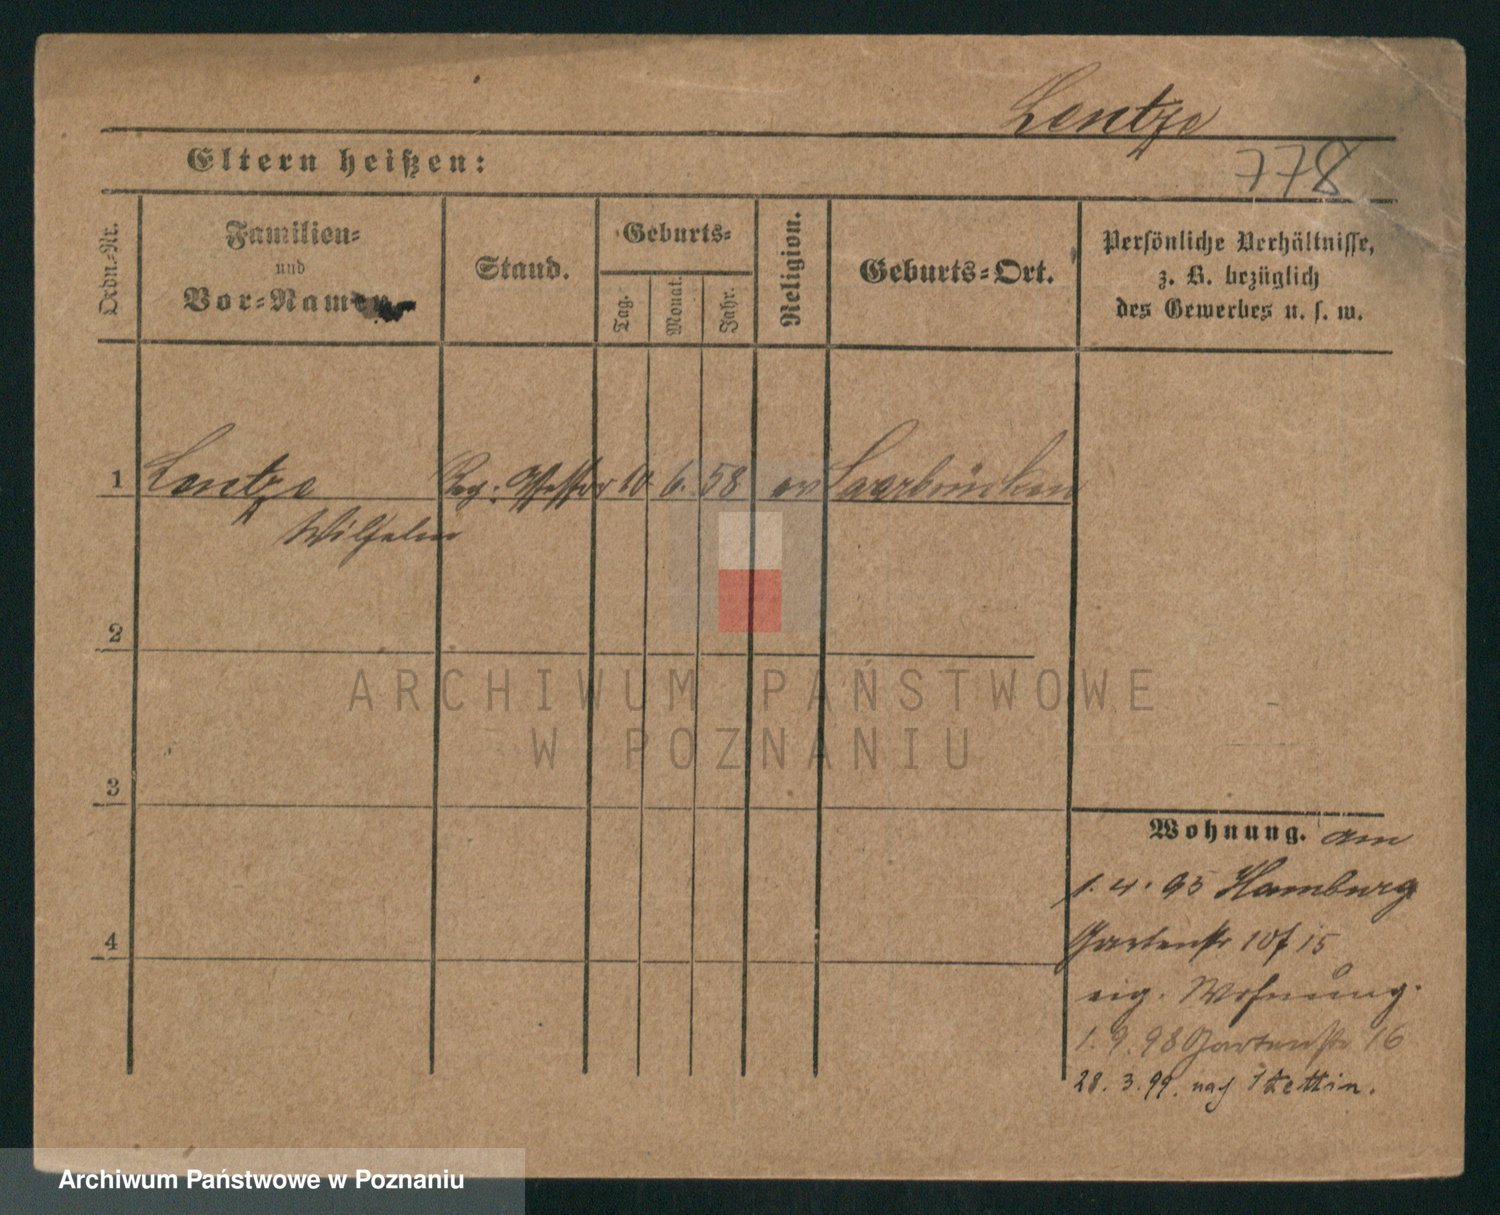 Lentze
778
Eltern heißen:
Ordn.-Nr.
Familien-
und
Vor-Namen
Stand.
Geburts-
Tag.
Monat.
Jahr.
Religion.
Geburts-Ort.
Persönliche Verhältnisse,
z. B. bezüglich
des Gewerbes u. s. w.
1 Lentze Reg. Assessor 10 6. 58 ev Saarbrücken
Wilhelm
2
3
4
ARCHIWUM PAŃSTWOWE
W POZNANIU
Wohnung. am
1. 4. 95 Hamburg
Gartenstr 15
eig. Wohnung.
1. 9. 98 Gartenstr 16
28. 3. 99. nach Stettin.
Archiwum Państwowe w Poznaniu